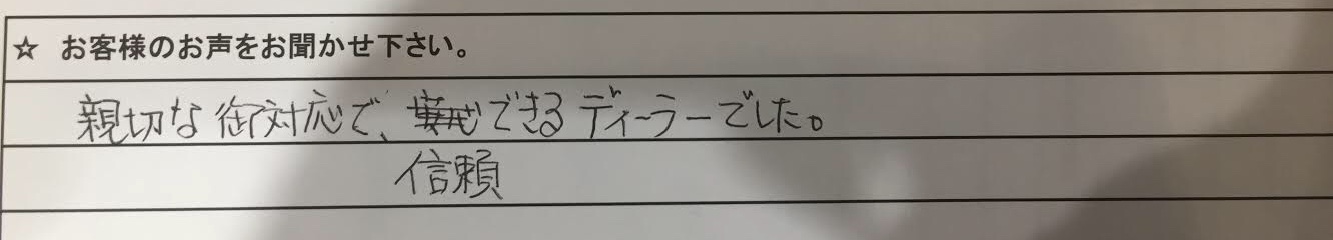 ☆ お客様のお声をお聞かせ下さい。
親切な御対応で、できるディーラーでした。
信頼